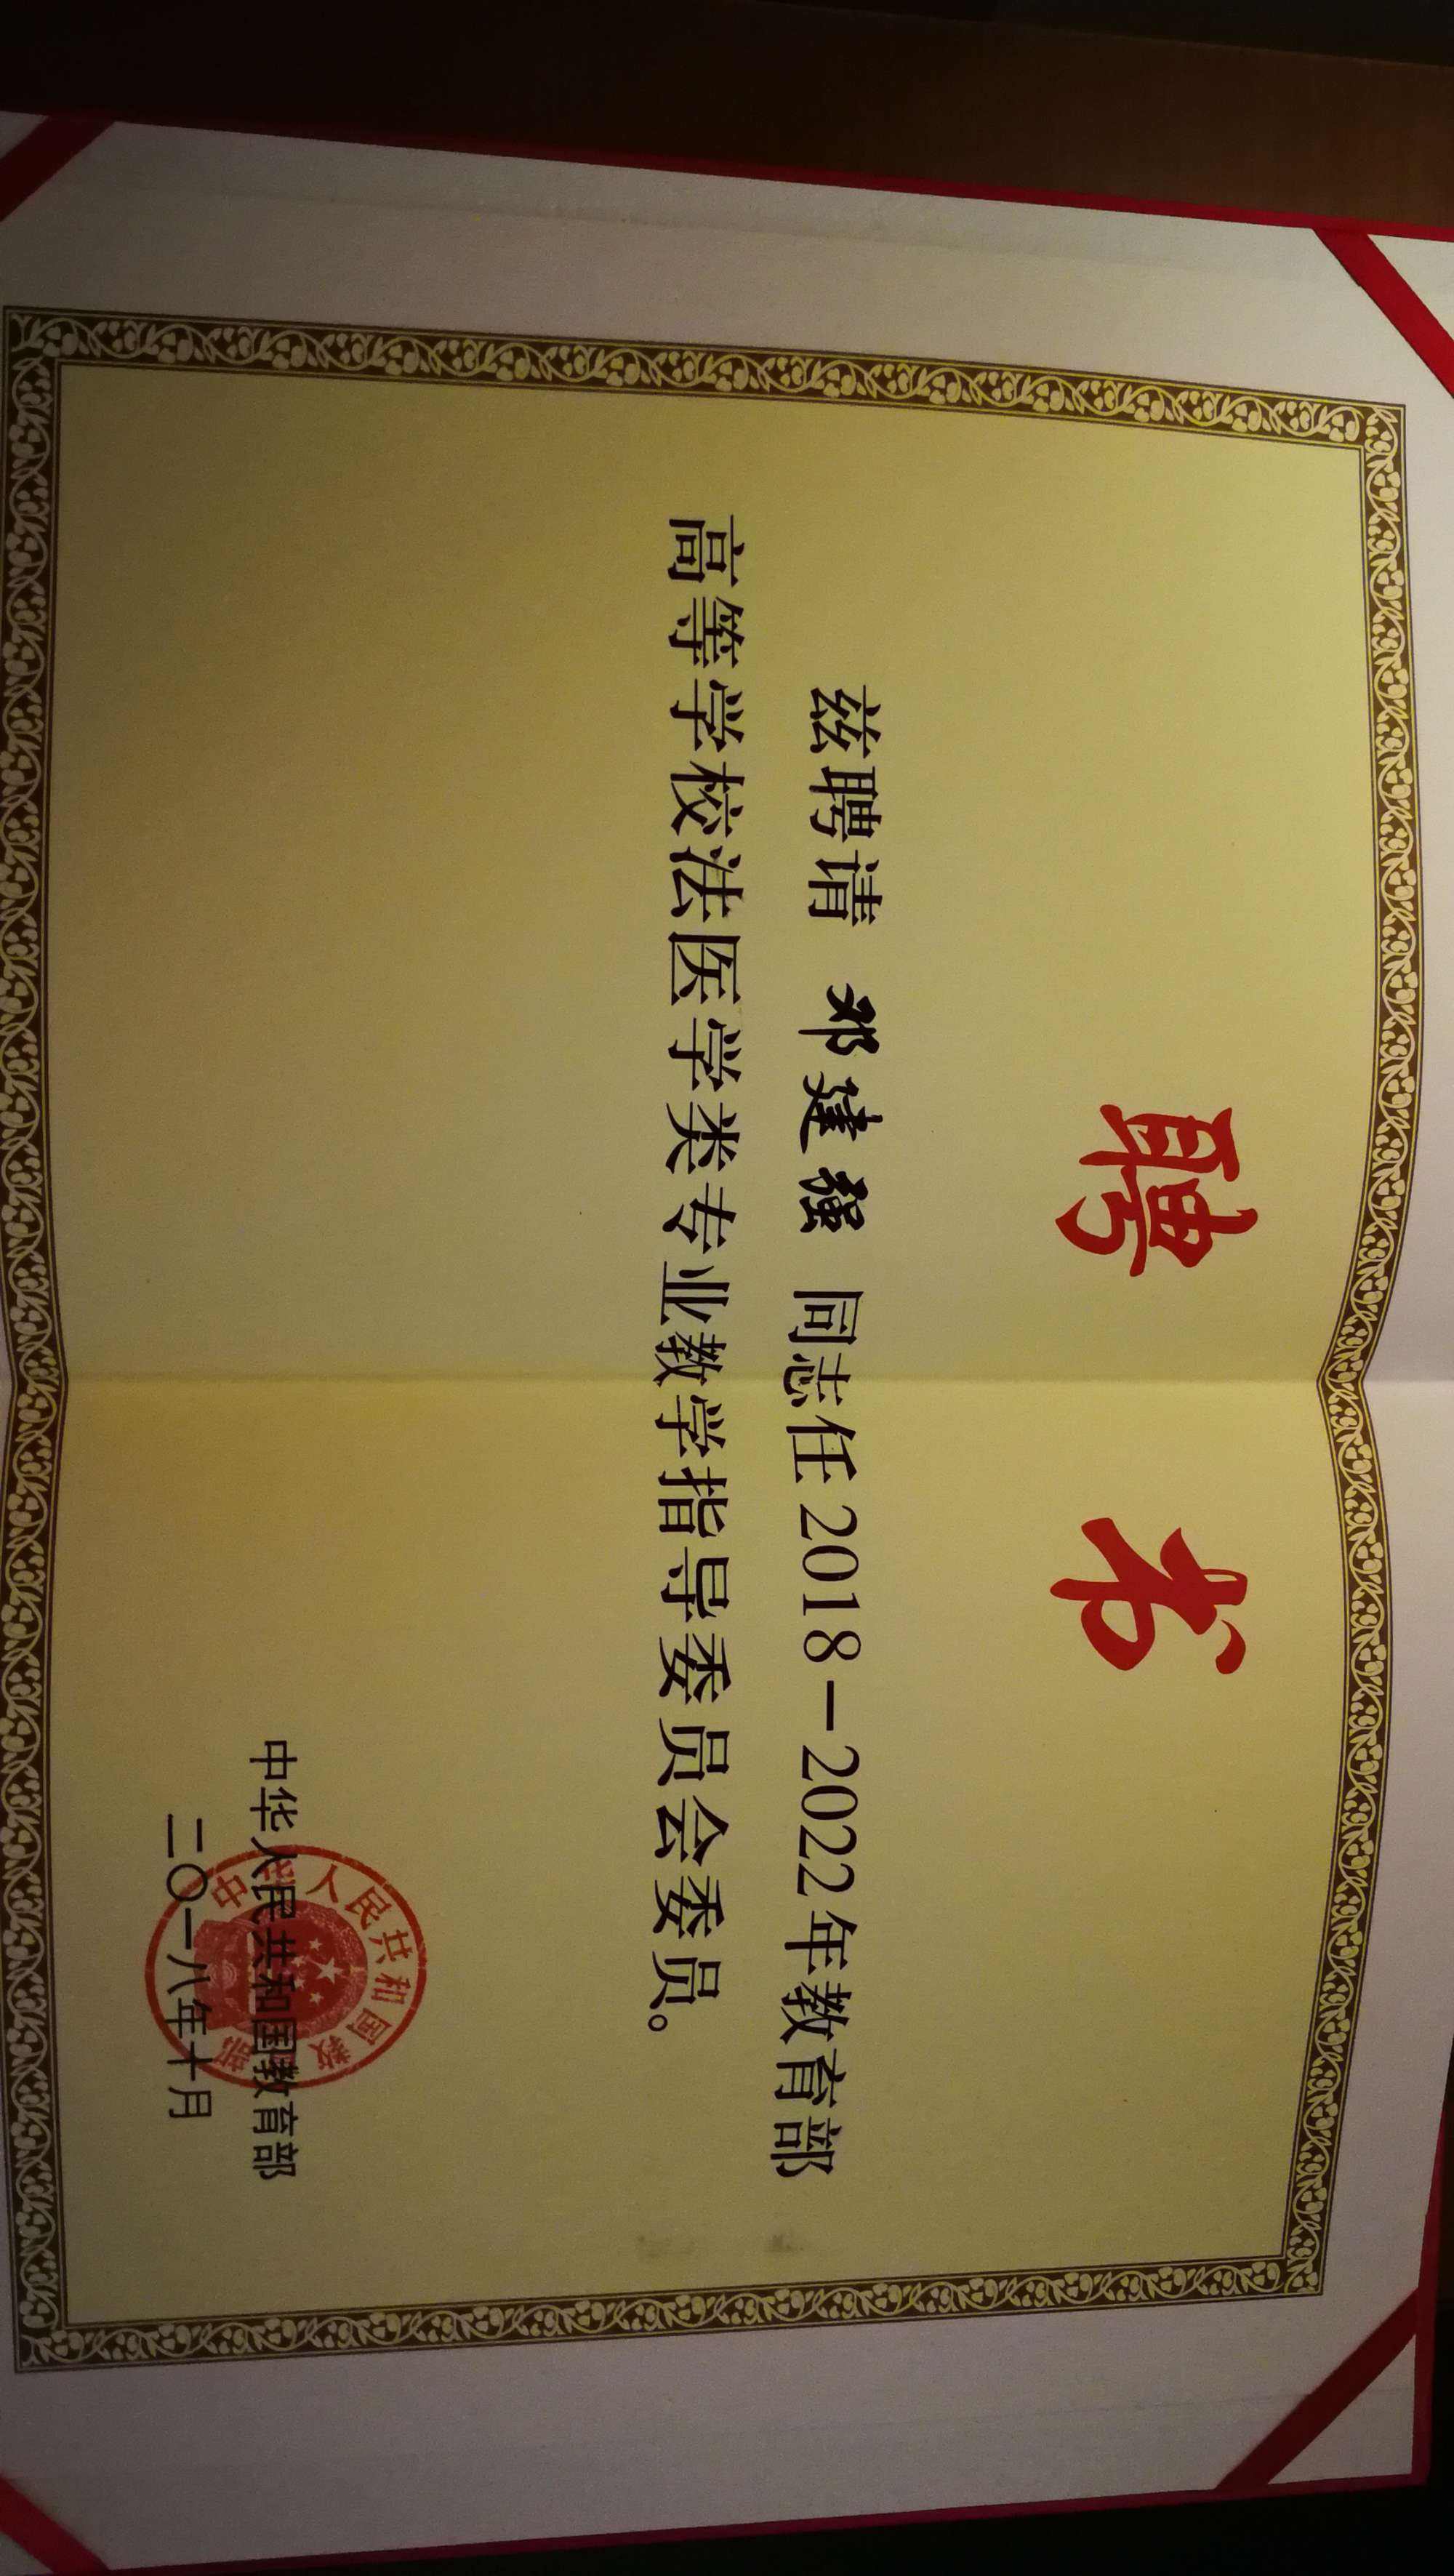 聘书
兹聘请 邓建强 同志任2018-2022年教育部
高等学校法医学类专业教学指导委员会委员。
中华人民共和国教育部
二〇一八年十月
中华人民共和国教育部